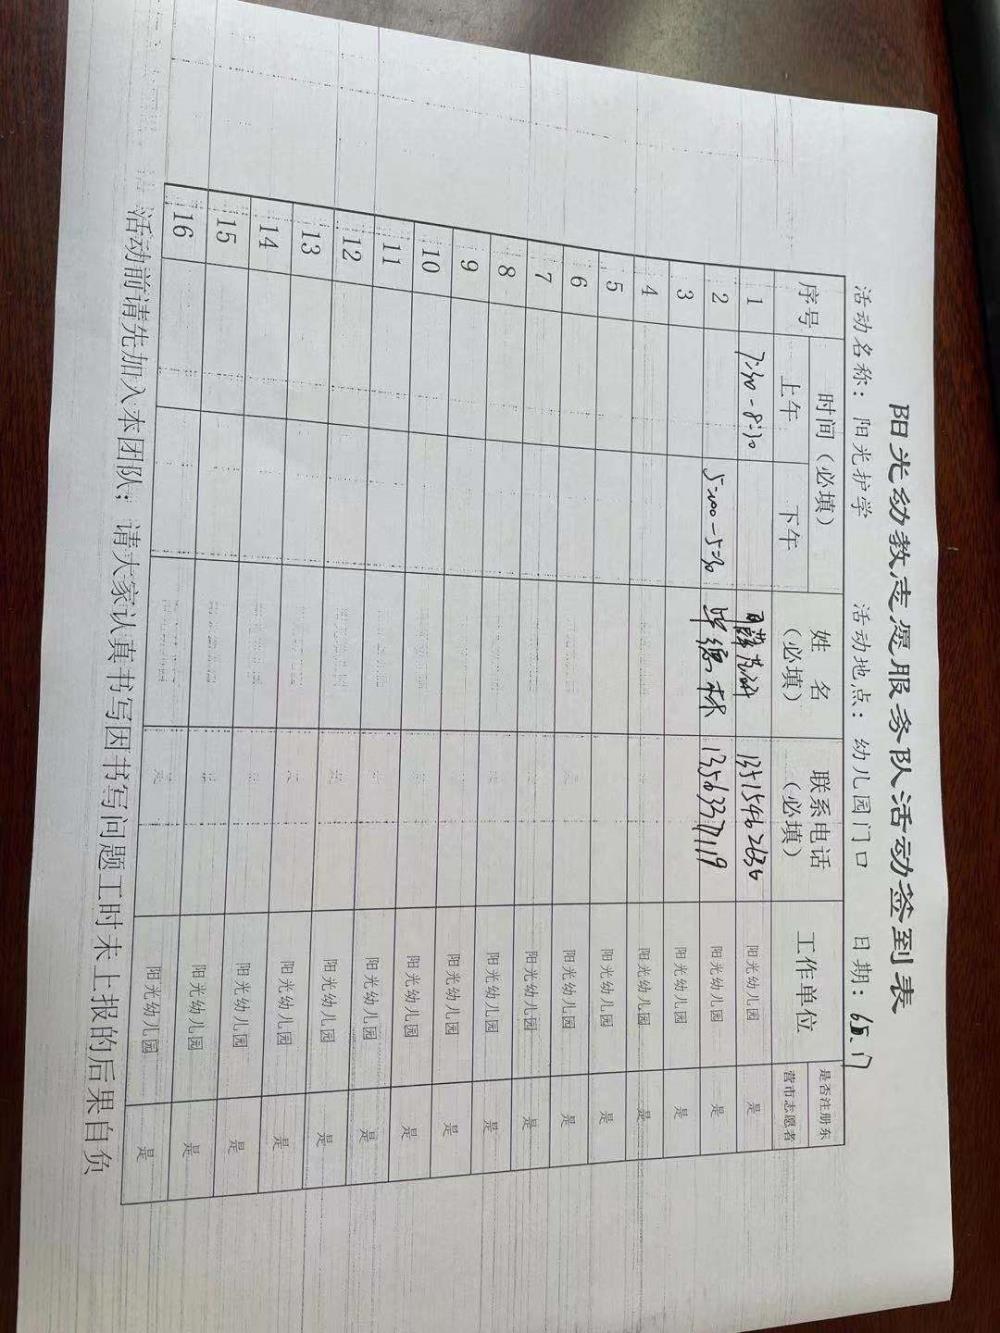 阳光幼教志愿服务队活动签到表
活动名称：阳光护学 活动地点：幼儿园门口 日期：
序号 时间（必填） 姓 名（必填） 联系电话（必填） 工作单位 是否注册东营市志愿者
上午 下午
1 7:30-8:30 13515462636 阳光幼儿园 是
2 5:00-5:30 毕德林 13563377119 阳光幼儿园 是
3 阳光幼儿园 是
4 阳光幼儿园 是
5 阳光幼儿园 是
6 阳光幼儿园 是
7 阳光幼儿园 是
8 阳光幼儿园 是
9 阳光幼儿园 是
10 阳光幼儿园 是
11 阳光幼儿园 是
12 阳光幼儿园 是
13 阳光幼儿园 是
14 阳光幼儿园 是
15 阳光幼儿园 是
16 阳光幼儿园 是
活动前请先加入本团队；请大家认真书写因书写问题工时未上报的后果自负